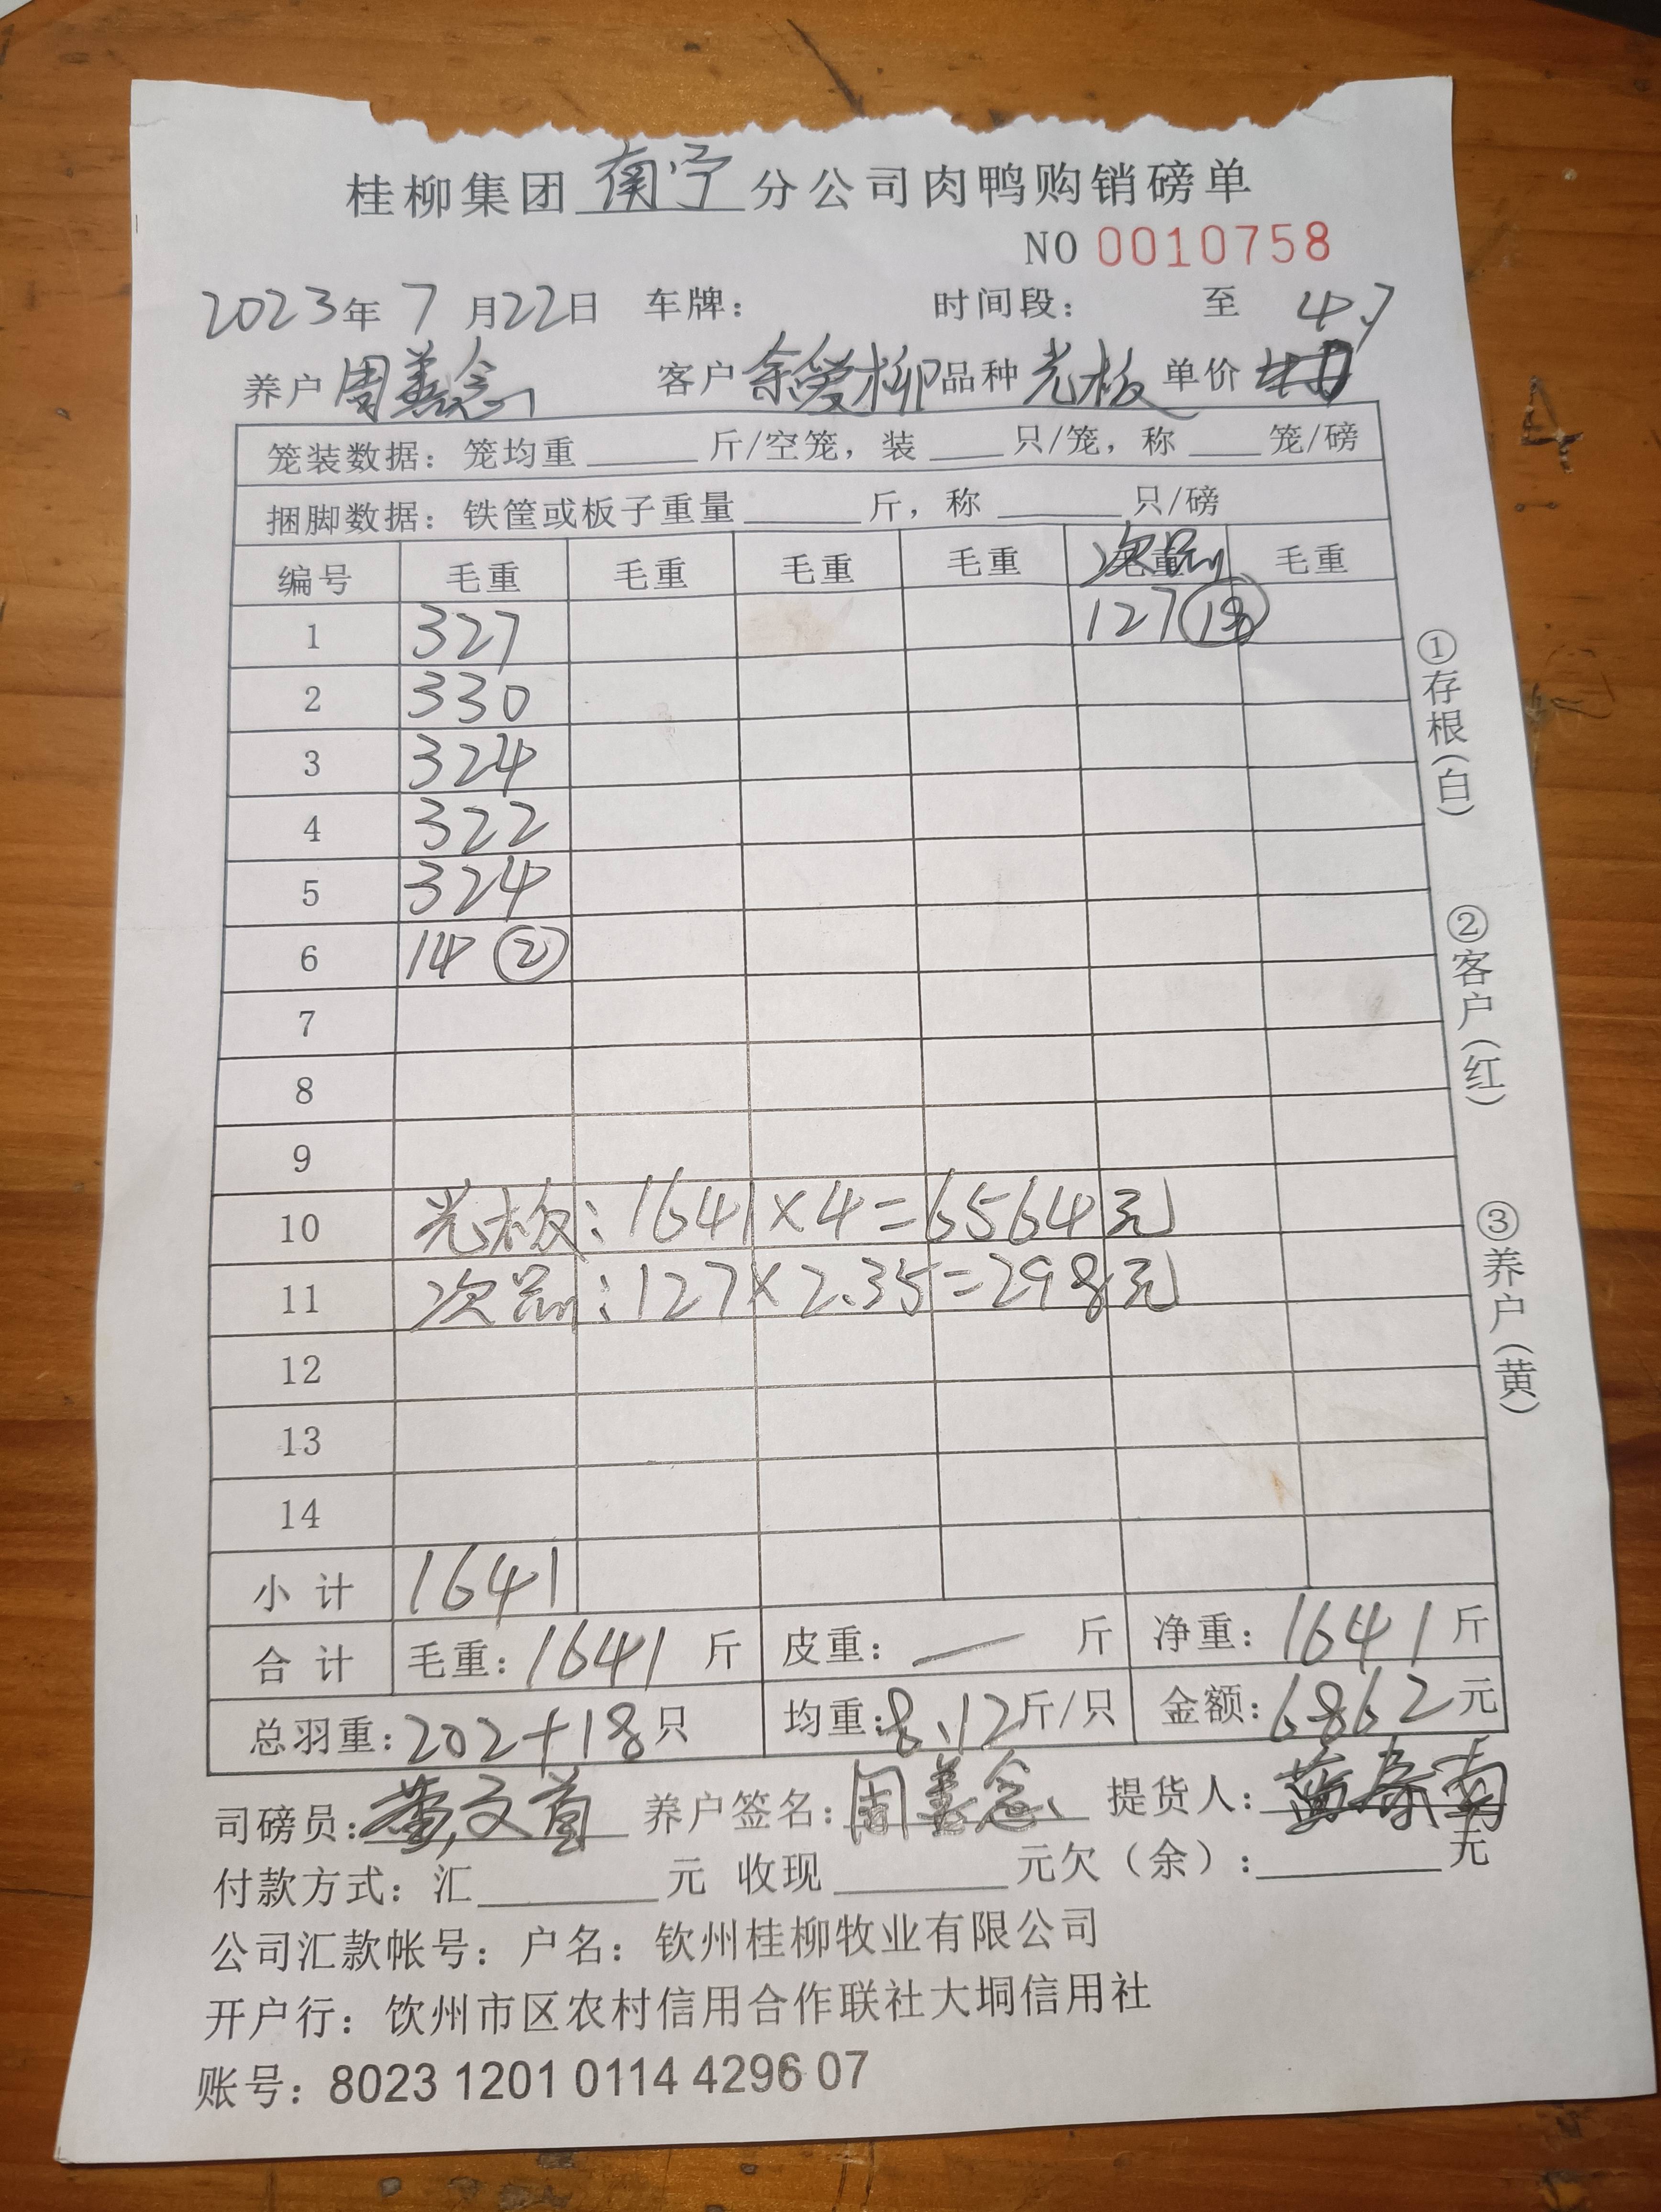 桂柳集团 南宁 分公司肉鸭购销磅单
NO 0010758
2023年 7 月22日 车牌: 时间段: 至
养户 周善念 客户 余爱柳 品种 光板 单价
笼装数据: 笼均重 斤/空笼, 装 只/笼, 称 笼/磅
捆脚数据: 铁筐或板子重量 斤, 称 只/磅
编号 毛重 毛重 毛重 毛重 次品 毛重
1 327 127 (18)
2 330
3 324
4 322
5 324
6 14 ②
7
8
9
10 光板: 1641×4=6564元
11 次品: 127×2.35=298元
12
13
14
小计 1641
合计 毛重: 1641 斤 皮重: — 斤 净重: 1641 斤
总羽重: 202+18只 均重: 8.12斤/只 金额: 6862元
司磅员: 养户签名: 周善念 提货人:
付款方式: 汇 元 收现 元欠(余): 元
公司汇款帐号: 户名: 钦州桂柳牧业有限公司
开户行: 饮州市区农村信用合作联社大垌信用社
账号: 8023 1201 0114 4296 07
①存根(白)
②客户(红)
③养户(黄)